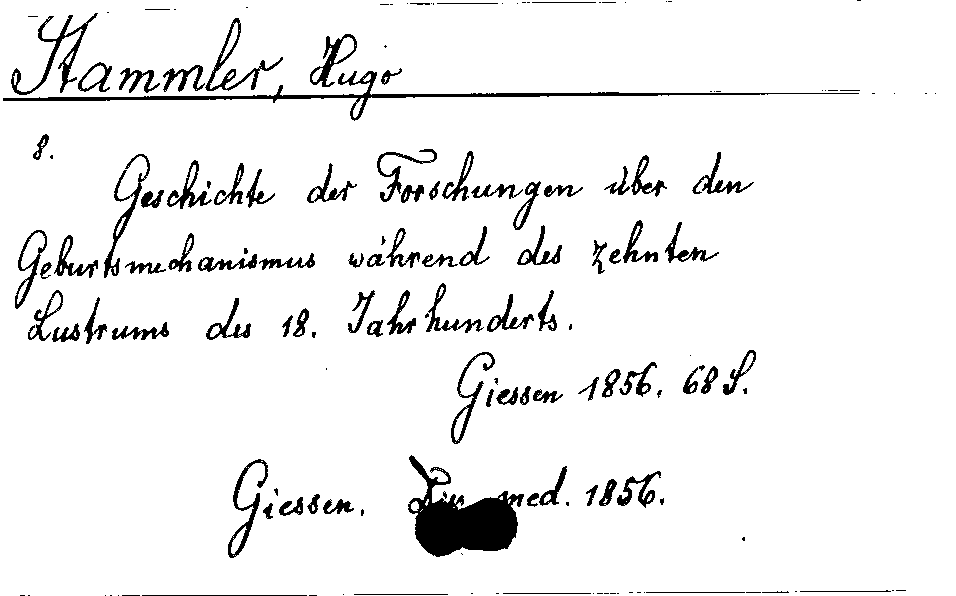 Stammler, Hugo
8.
Geschichte der Forschungen über den
Geburtsmechanismus während des zehnten
Lustrums des 18. Jahrhunderts.
Giessen 1856. 68 S.
Giessen. med. 1856.